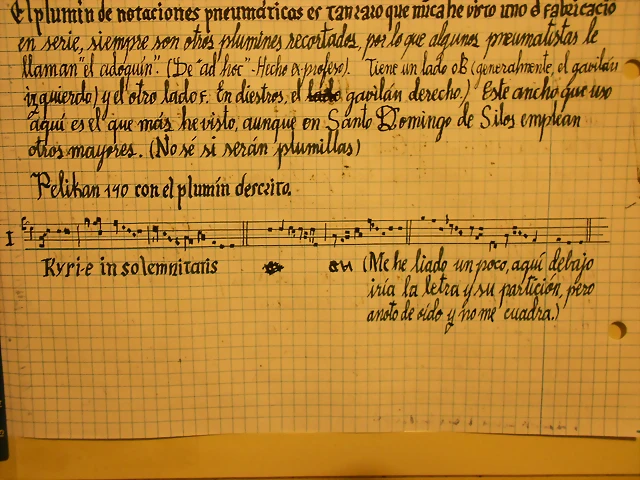 El plumín de notaciones pneumáticas es tan raro que nuca he visto uno d fabricacio
en serie, siempre son otros plumines recortados, por lo que algunos pneumatistas le
llaman "el adoquín". (De "ad hoc" - Hecho ex-profeso). Tiene un lado oB (generalmente, el gavilán
izquierdo) y el otro lado F. En diestros, el gavilán derecho.) Este ancho que uso
aquí es el que más he visto, aunque en Santo Domingo de Silos emplean
otros mayores. (No sé si serán plumillas)
Pelikan 140 con el plumín descrito.
I
Kyrie in solemnitatis
(Me he liado un poco, aquí debajo
iría la letra y su partición, pero
anoto de oído y no me cuadra.)